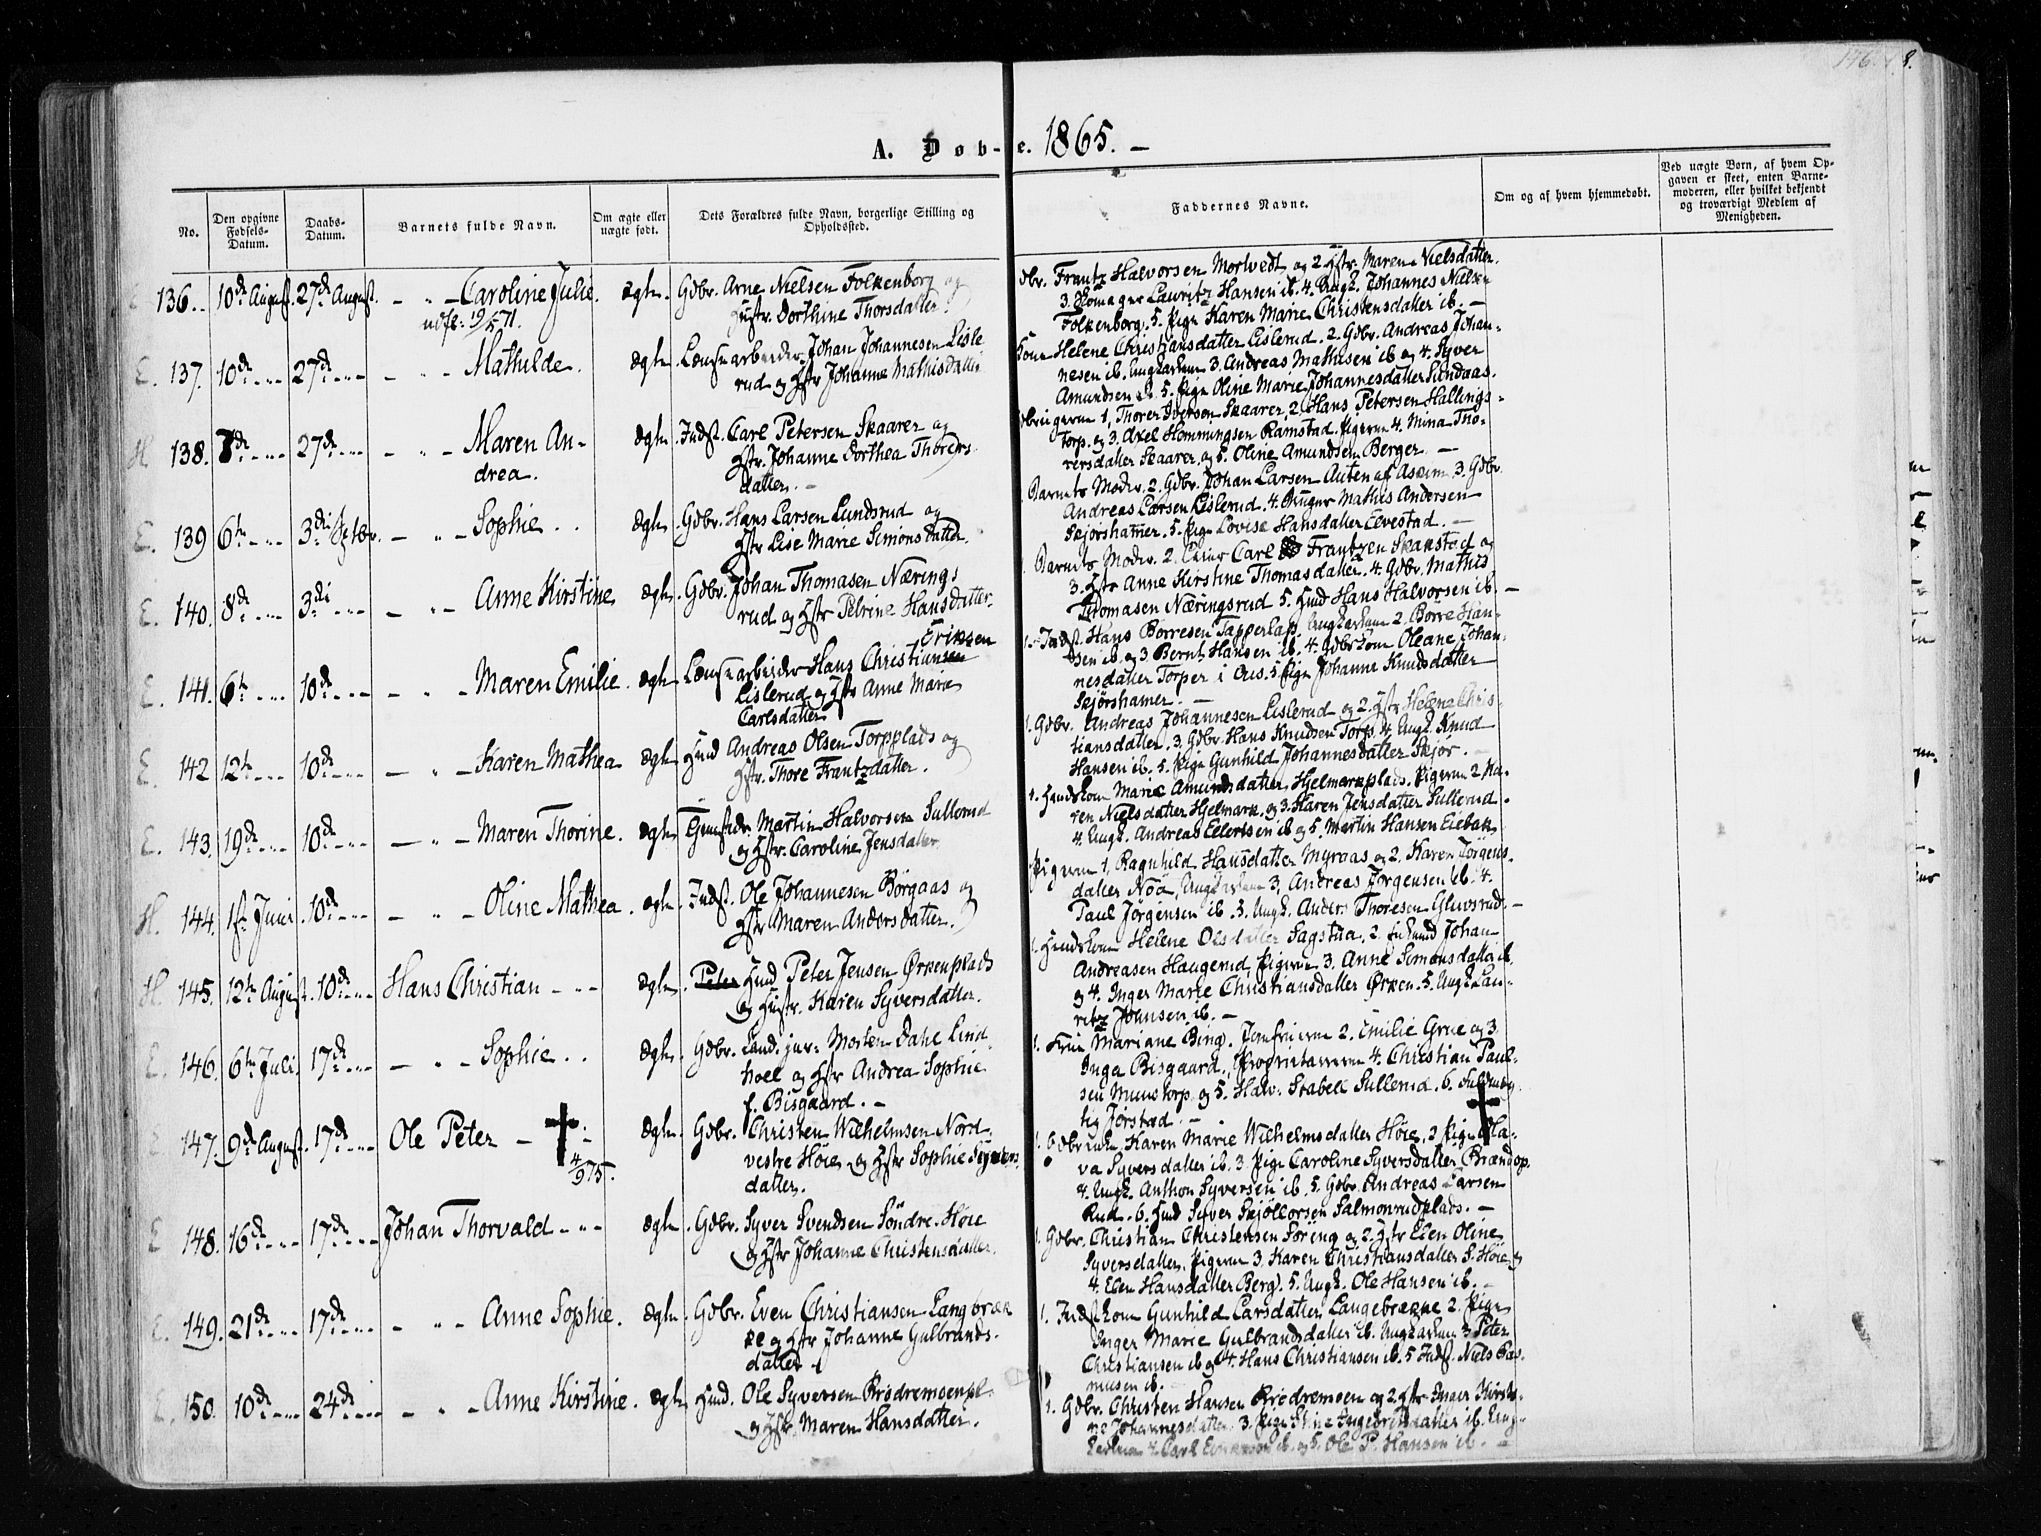 146.
8.
A. Døb-
e. 1865. –
No.
Den opgivne
Fødsels-
Datum.
Daabs-
Datum.
Barnets fulde Navn.
Om ægte eller
uægte født.
Dets Forældres fulde Navn, borgerlige Stilling og
Opholdssted.
Faddernes Navne.
Om og af hvem hjemmedøbt.
Ved uægte Børn, af hvem Op-
gaven er skeet, enten Barne-
moderen, eller hvilket bekjendt
og troværdigt Medlem af
Menigheden.
136. 10de August. 27de August. – „ – Caroline Julie. ægte. Gdbr. Arne Nielsen Folkenborg og
udfl: 19/5 71.
Hustr. Dorthine Thorsdatter.
Gdbr. Frantz Halvorsen Mortvedt og 2. Hstr. Maren Nielsdatter.
3. Lauritz Hansen ib. 4. Ungk. Johannes Nielsen
Folkenborg. 5. Pige Karen Marie Christensdatter ib. –
E. 137. 10de 27de – „ – Mathilde. ægte. Johan Johannesen Lisle
rud og Hstr Johanne Mathisdatter
Helene Christiansdatter Lislerud. 2. Gdbr. Andreas Johan-
nesen ib. Ungkarlene 3. Andreas Mathisen ib og 4. Syver
Amundsen ib. 5. Pige Oline Marie Johannesdatter Sandaas.
H 138. 7de 27de – „ – Maren An- ægte. Indst. Carl Petersen Skaarer og
drea. Hstr. Johanne Dorthea Thorers-
datter. –
1, Thorer Iversen Skaarer, 2. Hans Petersen Hallings-
torp. og 3. Axel Hemmingsen Ramstad. Pigerne 4. Mina Tho-
rersdatter Skaarer, og 5. Oline Amundsen Berger. –
E. 139 6te 3die Septbr. – „ – Sophie. ægte. Gdbr. Hans Larsen Lundsrud og
Hstr Lise Marie Simonsdatter.
Barnets Moder. 2. Gdbr. Johan Larsen Auten af Askim. 3. Gdbr.
Andreas Larsen Lislerud. 4. Mathis Andersen
Skjørshamer. 5. Pige Lovise Hansdatter Elvestad. –
E. 140. 8de 3die – „ – Anne Kirstine ægte. Gdbr. Johan Thomasen Nærings
rud og Hstr Petrine Hansdatter.
Barnets Moder. 2. Carl Frantzen Skanstad og
3. Hstr Anne Kirstine Thomasdatter. 4. Gdbr. Mathis
Thomasen Næringsrud 5. Hmd Hans Halvorsen ib. –
Eriksen
E. 141. 6te 10de – „ – Maren Emilie. ægte. Hans Christiansen
Lislerud og Hstr Anne Marie
Carlsdatter
1. Indst. Hans Børresen Tapperlap. Ungkarlene 2. Børre Han-
sen ib. og 3. Bernt Hansen ib. 4. Gdbrkone Oleane Johan-
nesdatter Torper i Aas. 5. Pige Johanne Knudsdatter
Skjørshamer. –
E. 142 12te 10de – „ – Karen Mathea ægte. Hmd Andreas Olsen Torpplads og
Hstr. Thore Frantzdatter.
1. Gdbr. Andreas Johannesen Lislerud og 2. Hstr Helene Chris-
tiansdatter. 3. Gdbr. Hans Knudsen Torp. 4. Ungk. Knud
Hansen ib. 5. Pige Gunhild Johannesdatter Skjør. –
E. 143. 19de 10de – „ – Maren Thorine. ægte. Martin Halvorsen Sullerud
og Hstr. Caroline Jensdatter.
1. Hmdskone Marie Amundsdatter Hjelmarkplads. Pigerne 2. Ka-
ren Nielsdatter Hjelmark. og 3. Karen Jensdatter Sullerud.
4. Ungk. Andreas Ellertsen ib og 5. Martin Hansen Eiebak
H. 144. 1ste Juni. 10de – „ – Oline Mathea. ægte. Indst. Ole Johannesen Børgaas og
Hstr Maren Andersdatter.
Pigerne 1, Ragnhild Hansdatter Myraas og 2. Karen Jørgens-
datter Nøa, Ungkarlene 3, Andreas Jørgensen ib. 4.
Paul Jørgensen ib. 5. Ungk. Anders Thoresen Gluvsrud. –
H. 145. 12te August. 10de Hans Christian – ægte. Peter Hmd Peter Jensen Ørkenplads
og Hustr. Karen Syversdatter.
1. Hmdskone Helene Olsdatter Sagstua. 2. Johan
Andreasen Haugerud, Pigerne 3. Anne Simonsdatter ib.
og 4. Inger Marie Christiansdatter Ørken. 5. Ungk. Lau-
ritz Johnsen ib. –
E. 146. 6te Juli. 17de – „ – Sophie. ægte. Gdbr. Cand. jur. Morten Dahl Lind
hoel og Hstr Andrea Sophie
f. Bisgaard. –
1. Frue Mariane Bing. Jomfruerne 2. Emilie Grue og 3.
Inga Bisgaard. Proprietærerne 4. Christian Paul-
sen Munstorp og 5. Halv. Stabell Sullerud. 6.
Jørstad. –
147. 9de August. 17de Ole Peter – ægte. Gdbr. Christen Wilhelmsen Nord
4/9 75. vestre Høie og Hstr Sophie Syvers
datter.
1. Karen Marie Wilhelmsdatter Høie, 2 Pige Ola-
va Syversdatter ib. 3. Pige Caroline Syversdatter Brændop.
4. Ungk. Anthon Syversen ib. 5. Gdbr. Andreas Larsen
Rud. 6. Hmd Syver Skjøllorsen Salmonrudplads. –
E 148. 16de 17de Johan Thorvald – ægte. Gdbr. Syver Svendsen Søndre Høie
og Hstr Johanne Christensdatter.
1. Gdbr. Christian Christensen Føring og 2. Hstr Elen Oline
Syversdatter. Pigerne 3. Karen Christiansdatter S. Høie og
4. Elen Hansdatter Berg. 5. Ungk. Ole Hansen ib. –
E. 149. 21de 17de – „ – Anne Sophie. ægte. Gdbr. Even Christiansen Langbræk
ke og Hstr Johanne Gulbrands-
datter
1. Indstkone Gunhild Larsdatter Langebrække 2. Pige
Inger Marie Gulbrandsdatter ib. Ungkarlene 3 Peter
Christiansen ib og 4. Hans Christiansen ib. 5 Indst. Niels Ras-
musen ib. –
E. 150. 10de 24de – „ – Anne Kirstine. ægte Hmd. Ole Syversen Brødremoenpl.
og Hstr. Maren Hansdatter.
1. Gdbr. Christen Hansen Brødremoen og 2. Hstr Kirsti-
ne Johannesdatter. 3. Pige ib. Ung-
4. Carl ib. og 5. Ole P. Hansen ib. –